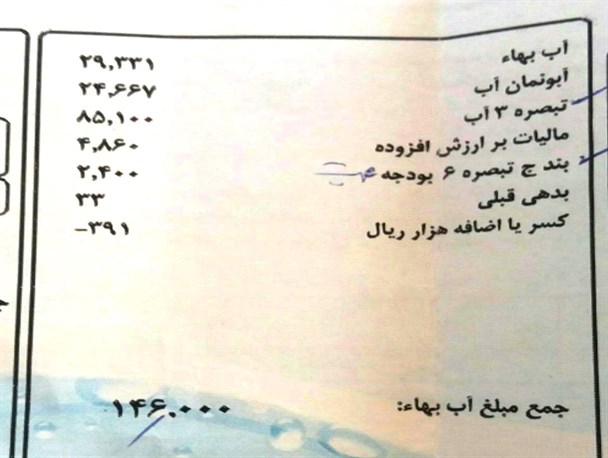 آب بهاء ۲۹,۳۳۱
آبونمان آب ۲۴,۶۶۷
تبصره ۳ آب ۸۵,۱۰۰
مالیات بر ارزش افزوده ۴,۸۶۰
بند ج تبصره ۶ بودجه ۲,۴۰۰
بدهی قبلی ۳۳
کسر یا اضافه هزار ریال -۳۹۱
جمع مبلغ آب بهاء: ۱۴۶,۰۰۰